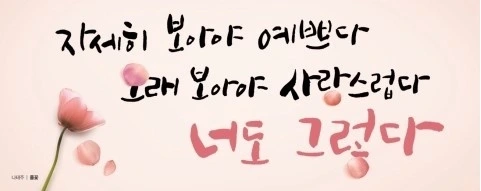 자세히 보아야 예쁘다
오래 보아야 사랑스럽다
너도 그렇다
나태주 | 풀꽃